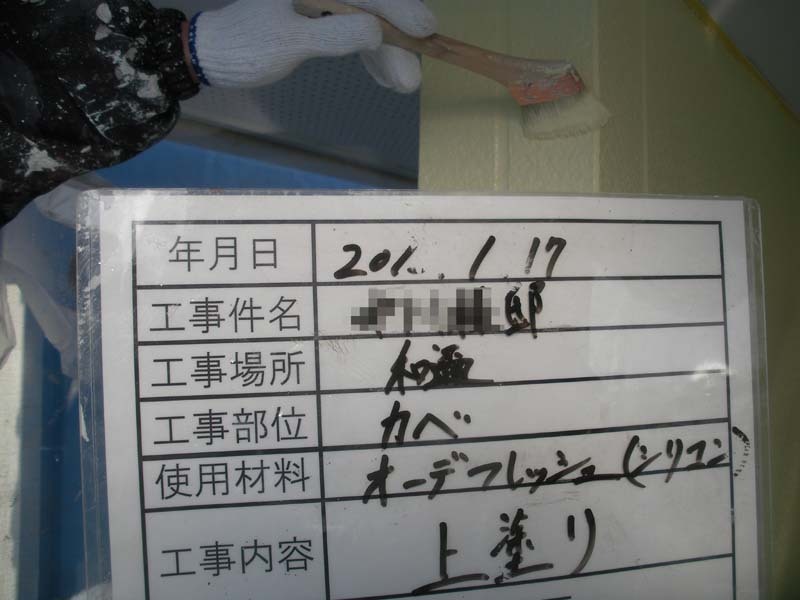 年月日 201. . 1. 17
工事件名 邸
工事場所
工事部位 カベ
使用材料 オーデフレッシュ(シリコン)
工事内容 上塗り